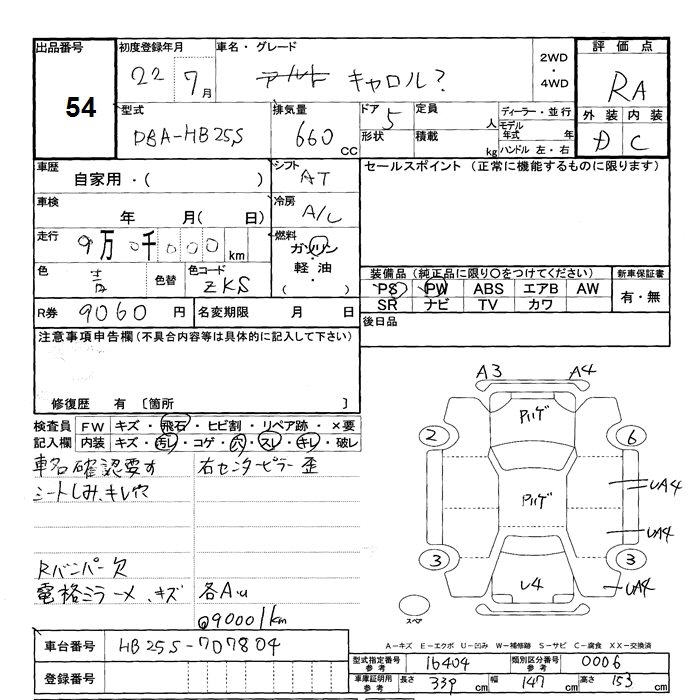 出品番号 初度登録年月 車名・グレード 2WD・4WD 評価点
54 22 7月 アルト キャロル? RA
型式 DBA-HB25S 排気量 660 CC ドア 5 形状 定員 人 積載 kg ディーラー・並行 モデル年式 年 ハンドル 左・右 外装 内装 D C
車歴 自家用・( ) シフト AT セールスポイント (正常に機能するものに限ります)
車検 年 月( 日) 冷房 A/C
走行 9万0千000km 燃料 ガソリン・軽油・( )
色 青 色替 色コード ZKS 装備品(純正品に限り○をつけてください) 新車保証書
PS PW ABS エアB AW 有・無
SR ナビ TV カワ
R券 9060円 名変期限 月 日 後日品
注意事項申告欄(不具合内容等は具体的に記入して下さい)
修復歴 有 〔箇所
検査員 FW キズ・飛石・ヒビ割・リペア跡・×要
記入欄 内装 キズ・汚レ・コゲ・穴・スレ・キレ・破レ
車名確認要す 右センターピラー歪
シートしみ、キレ穴
Rバンパー欠
電格ミラーメ、キズ 各AU
@90001km
A3 A4
Pハゲ
2 6
Pハゲ UA4
UA4
3 3
U4 UA4
スペア
A-キズ E-エクボ U-凹み W-補修跡 S-サビ C-腐食 XX-交換済
車台番号 HB25S-707804
型式指定番号 参考 16404 類別区分番号 参考 0006
登録番号 車庫証明用 参考 長さ 339 cm 幅 147 cm 高さ 153 cm